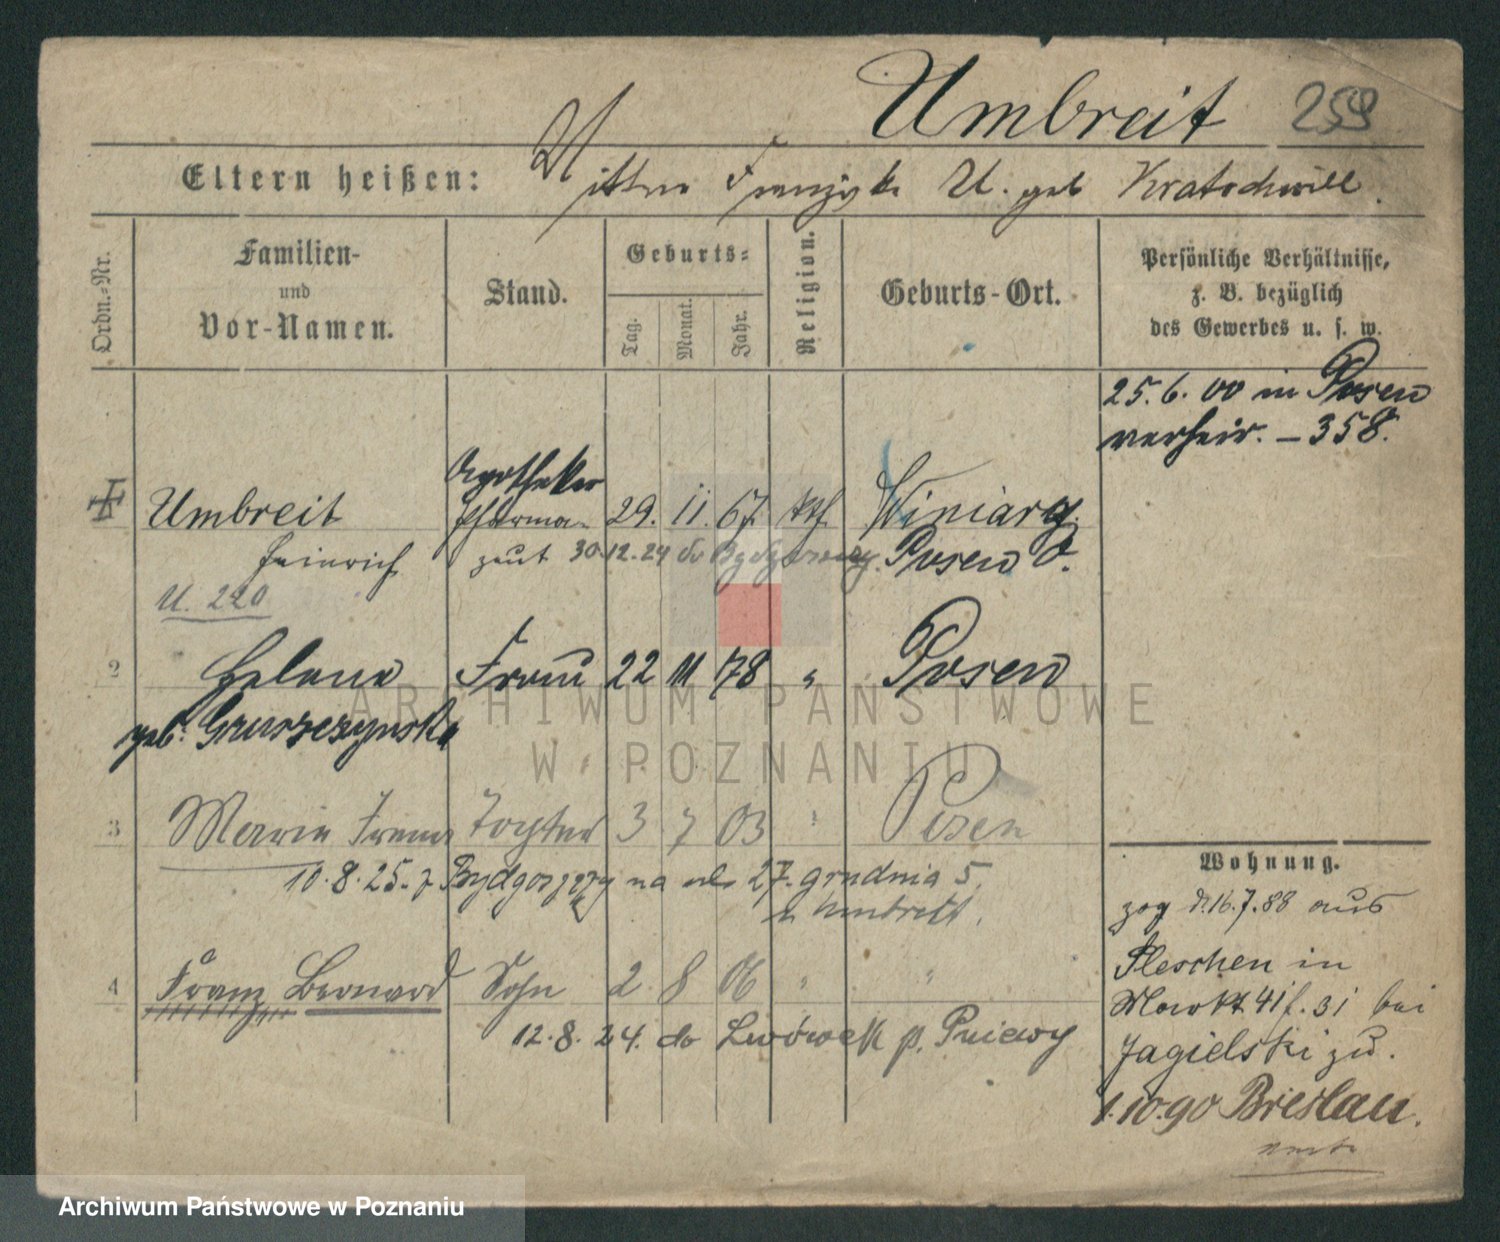 Umbreit 259
Eltern heißen: Wittwe Franziska U. geb Kratochwill.
Ordn.-Nr.
Familien-
und
Vor-Namen.
Stand.
Geburts-
Tag.
Monat.
Jahr.
Religion.
Geburts-Ort.
Persönliche Verhältnisse,
z. B. bezüglich
des Gewerbes u. s. w.
25.6.00 in Posen
verheir. – 358.
Apotheker
Umbreit Pharma- 29. 11. 67 kth Winiary
Heinrich zeut 30.12.24 do Bydgoszczy Posen O.
U. 220
2 Helene Frau 22 11 78 " Posen
geb. Gruszczynska
ARCHIWUM PAŃSTWOWE
W POZNANIU
3 Maria Irena Tochter 3 7 03 " Posen
10.8.25. z Bydgoszczy na ul. 27. grudnia 5
u Umbreit.
4 Franz Bernard Sohn 2 8 06 " "
12.8.24. do Lwówek p. Pniewy
Wohnung.
zog d. 16.7.88 aus
Pleschen in
Markt 41 f. 31 bei
Jagielski zu.
1.10.90 Breslau.
Archiwum Państwowe w Poznaniu